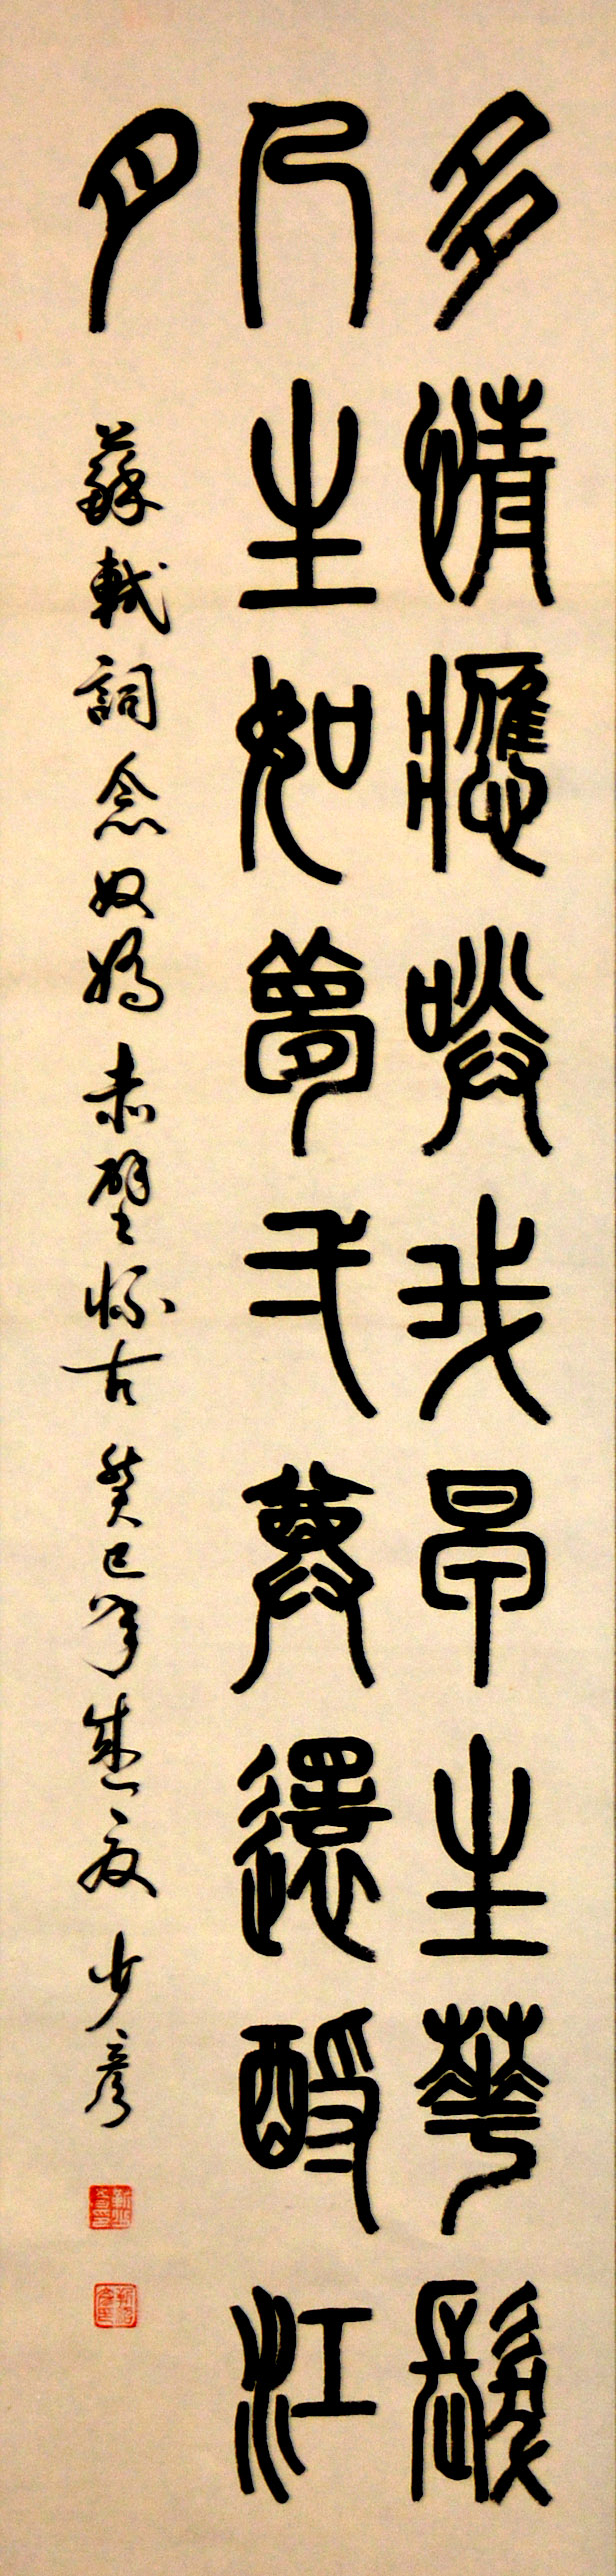 多情應笑我早生華髮
人生如夢一尊還酹江
月 蘇軾詞念奴嬌 赤壁懷古 癸巳年盛夏 少彥